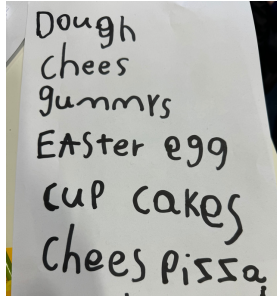 Dough
chees
gummys
EAster egg
cup cakes
Chees pizza